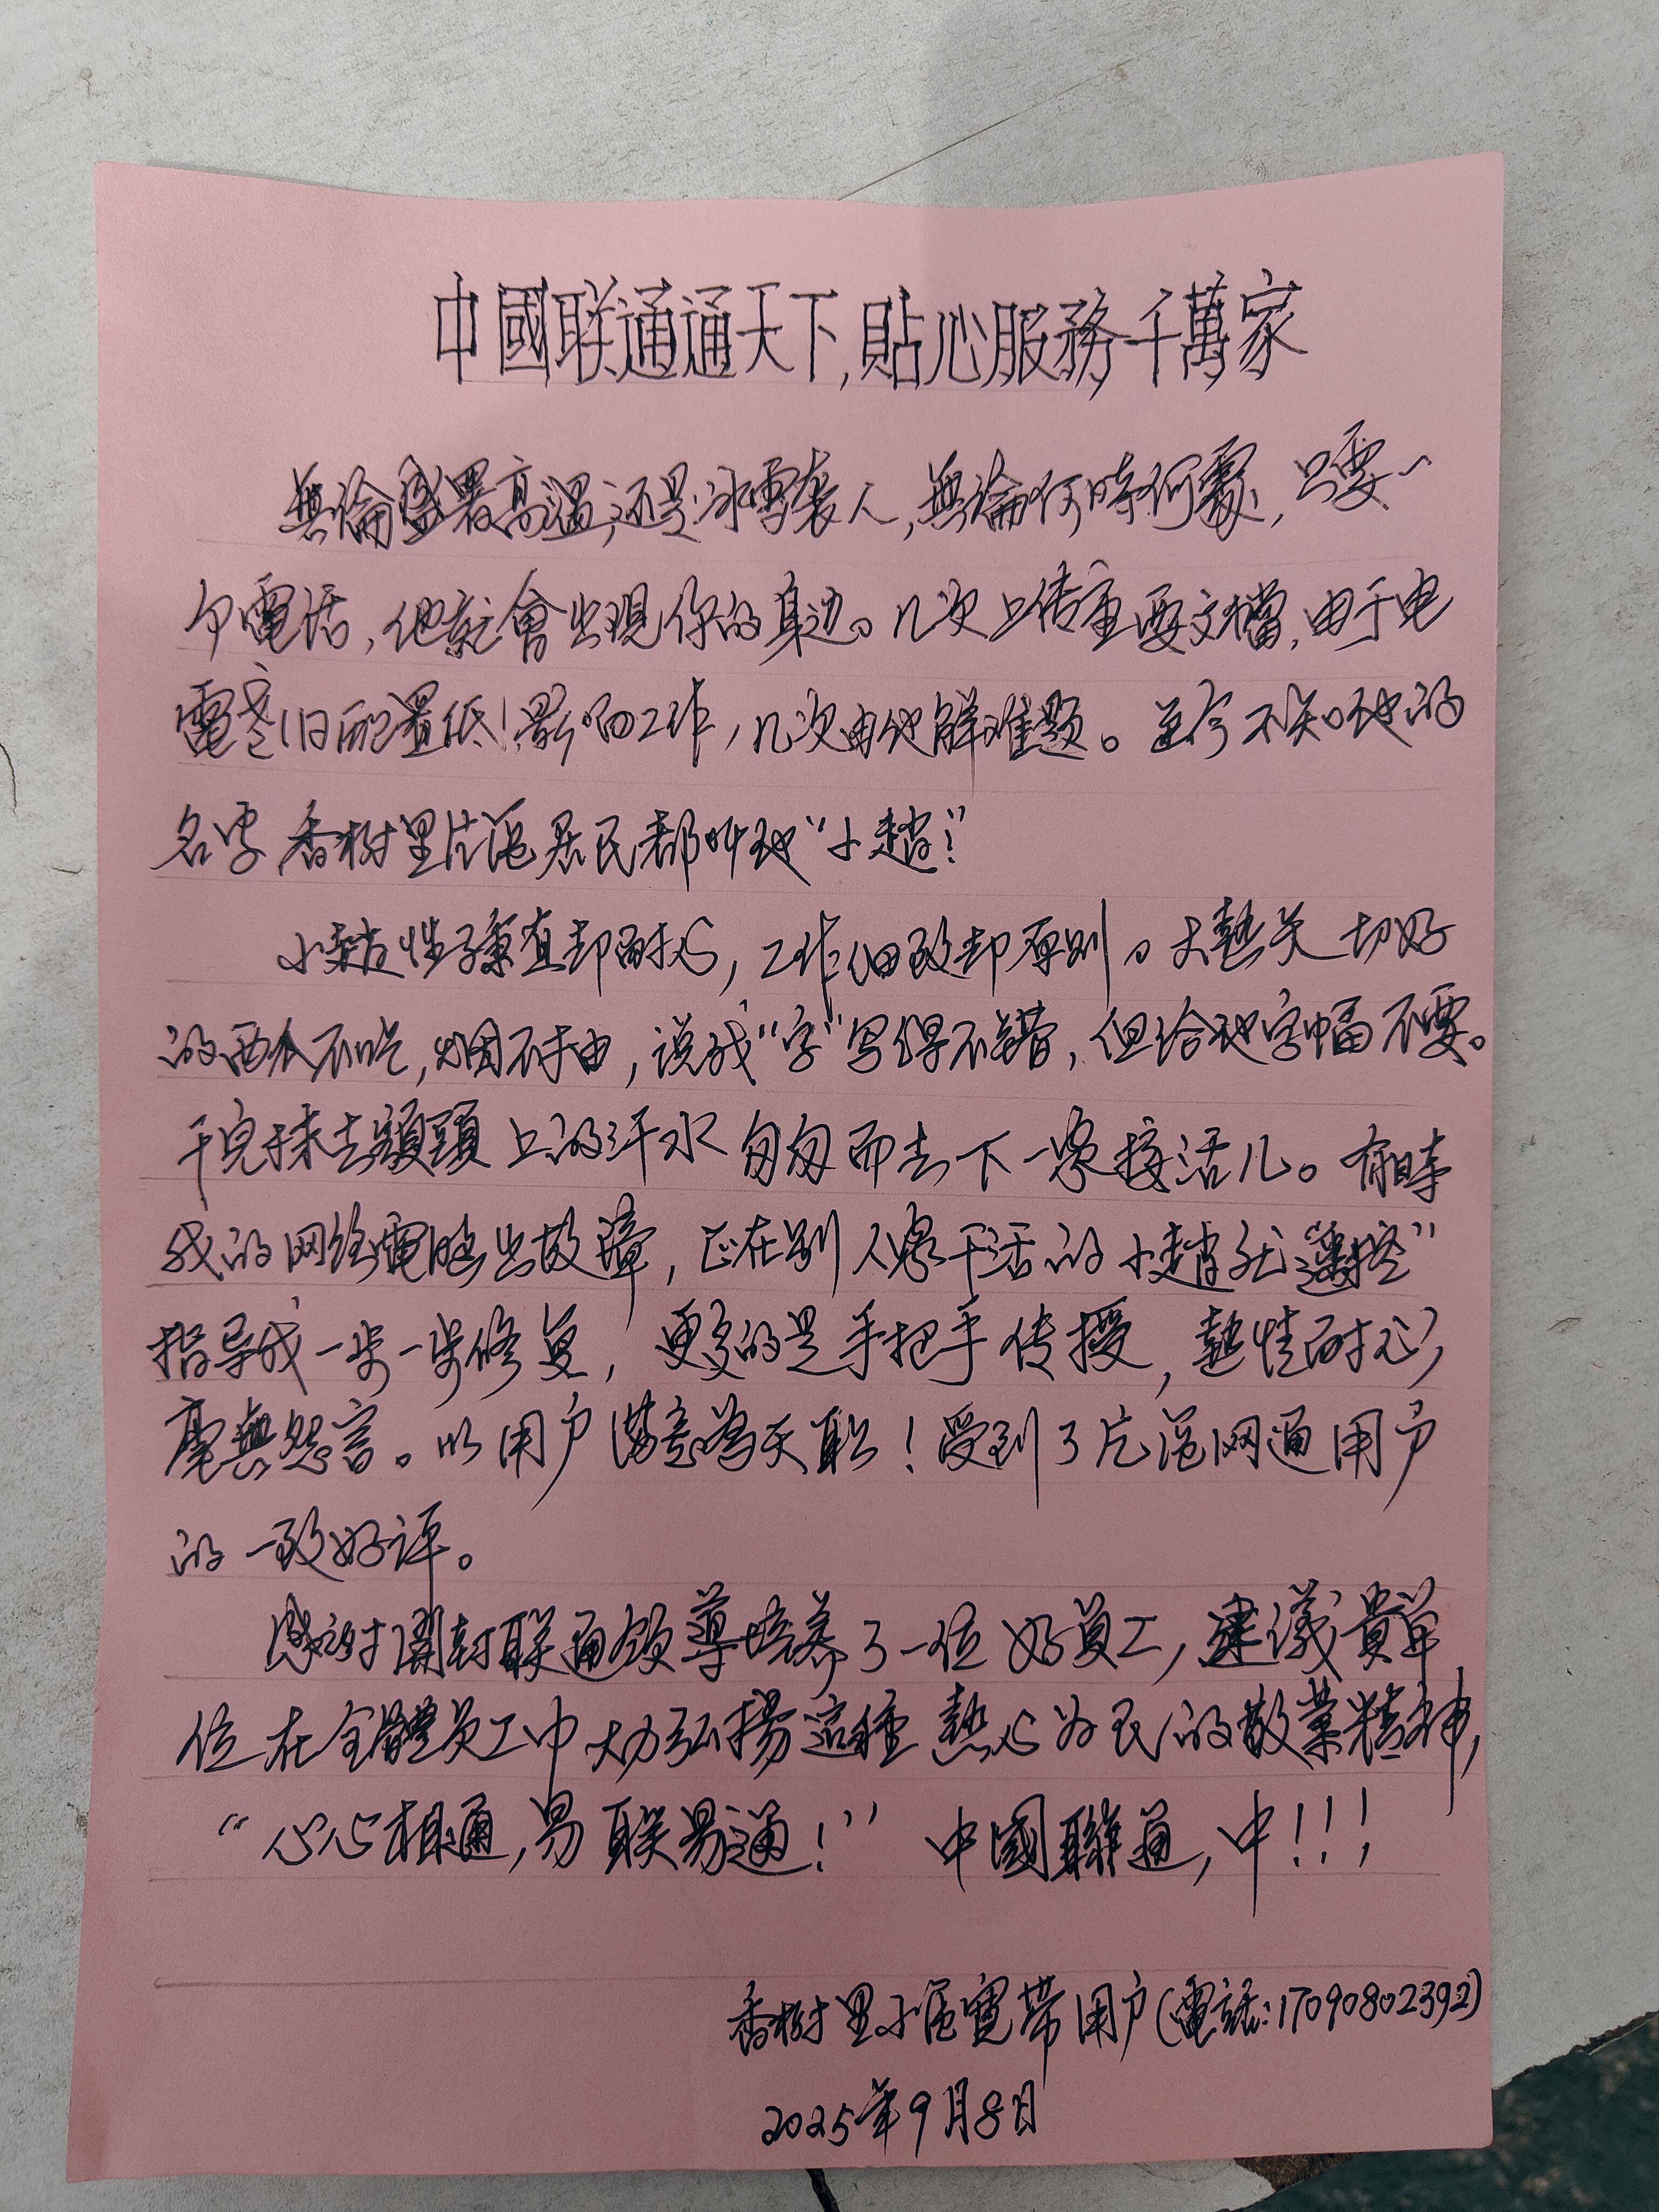 中國联通通天下,貼心服務千萬家
無論盛暑高温,还是冰雪袭人,無論何時何處,只要一
个電话,他就會出現你的身边。几次上传重要文檔,由于电
電老旧配置低!影响工作,几次由他解难题。至今不知他的
名字香樹里片區居民都叫他“小趙”!
小趙性子豪直却耐心,工作细致却原则。大熱天切好
的西瓜不吃,烟不抽,说我“字”写得不錯,但给他字幅不要。
干完抹去額頭上的汗水匆匆而去下一家接活儿。有時
我的网络電脑出故障,正在别人家干活的小趙就“遥控”
指导我一步一步修复,更多的是手把手传授,熱情耐心,
毫無怨言。以用户满意為天职!受到了片區网通用户
的一致好评。
感谢開封联通领導培养了一位好員工,建議貴單
位在全體员工中大力弘揚這種熱心为民的敬業精神,
“心心相通,易联易通!”中國聯通,中!!!
香樹里小區寬带用户(電話:17090802392)
2025年9月8日